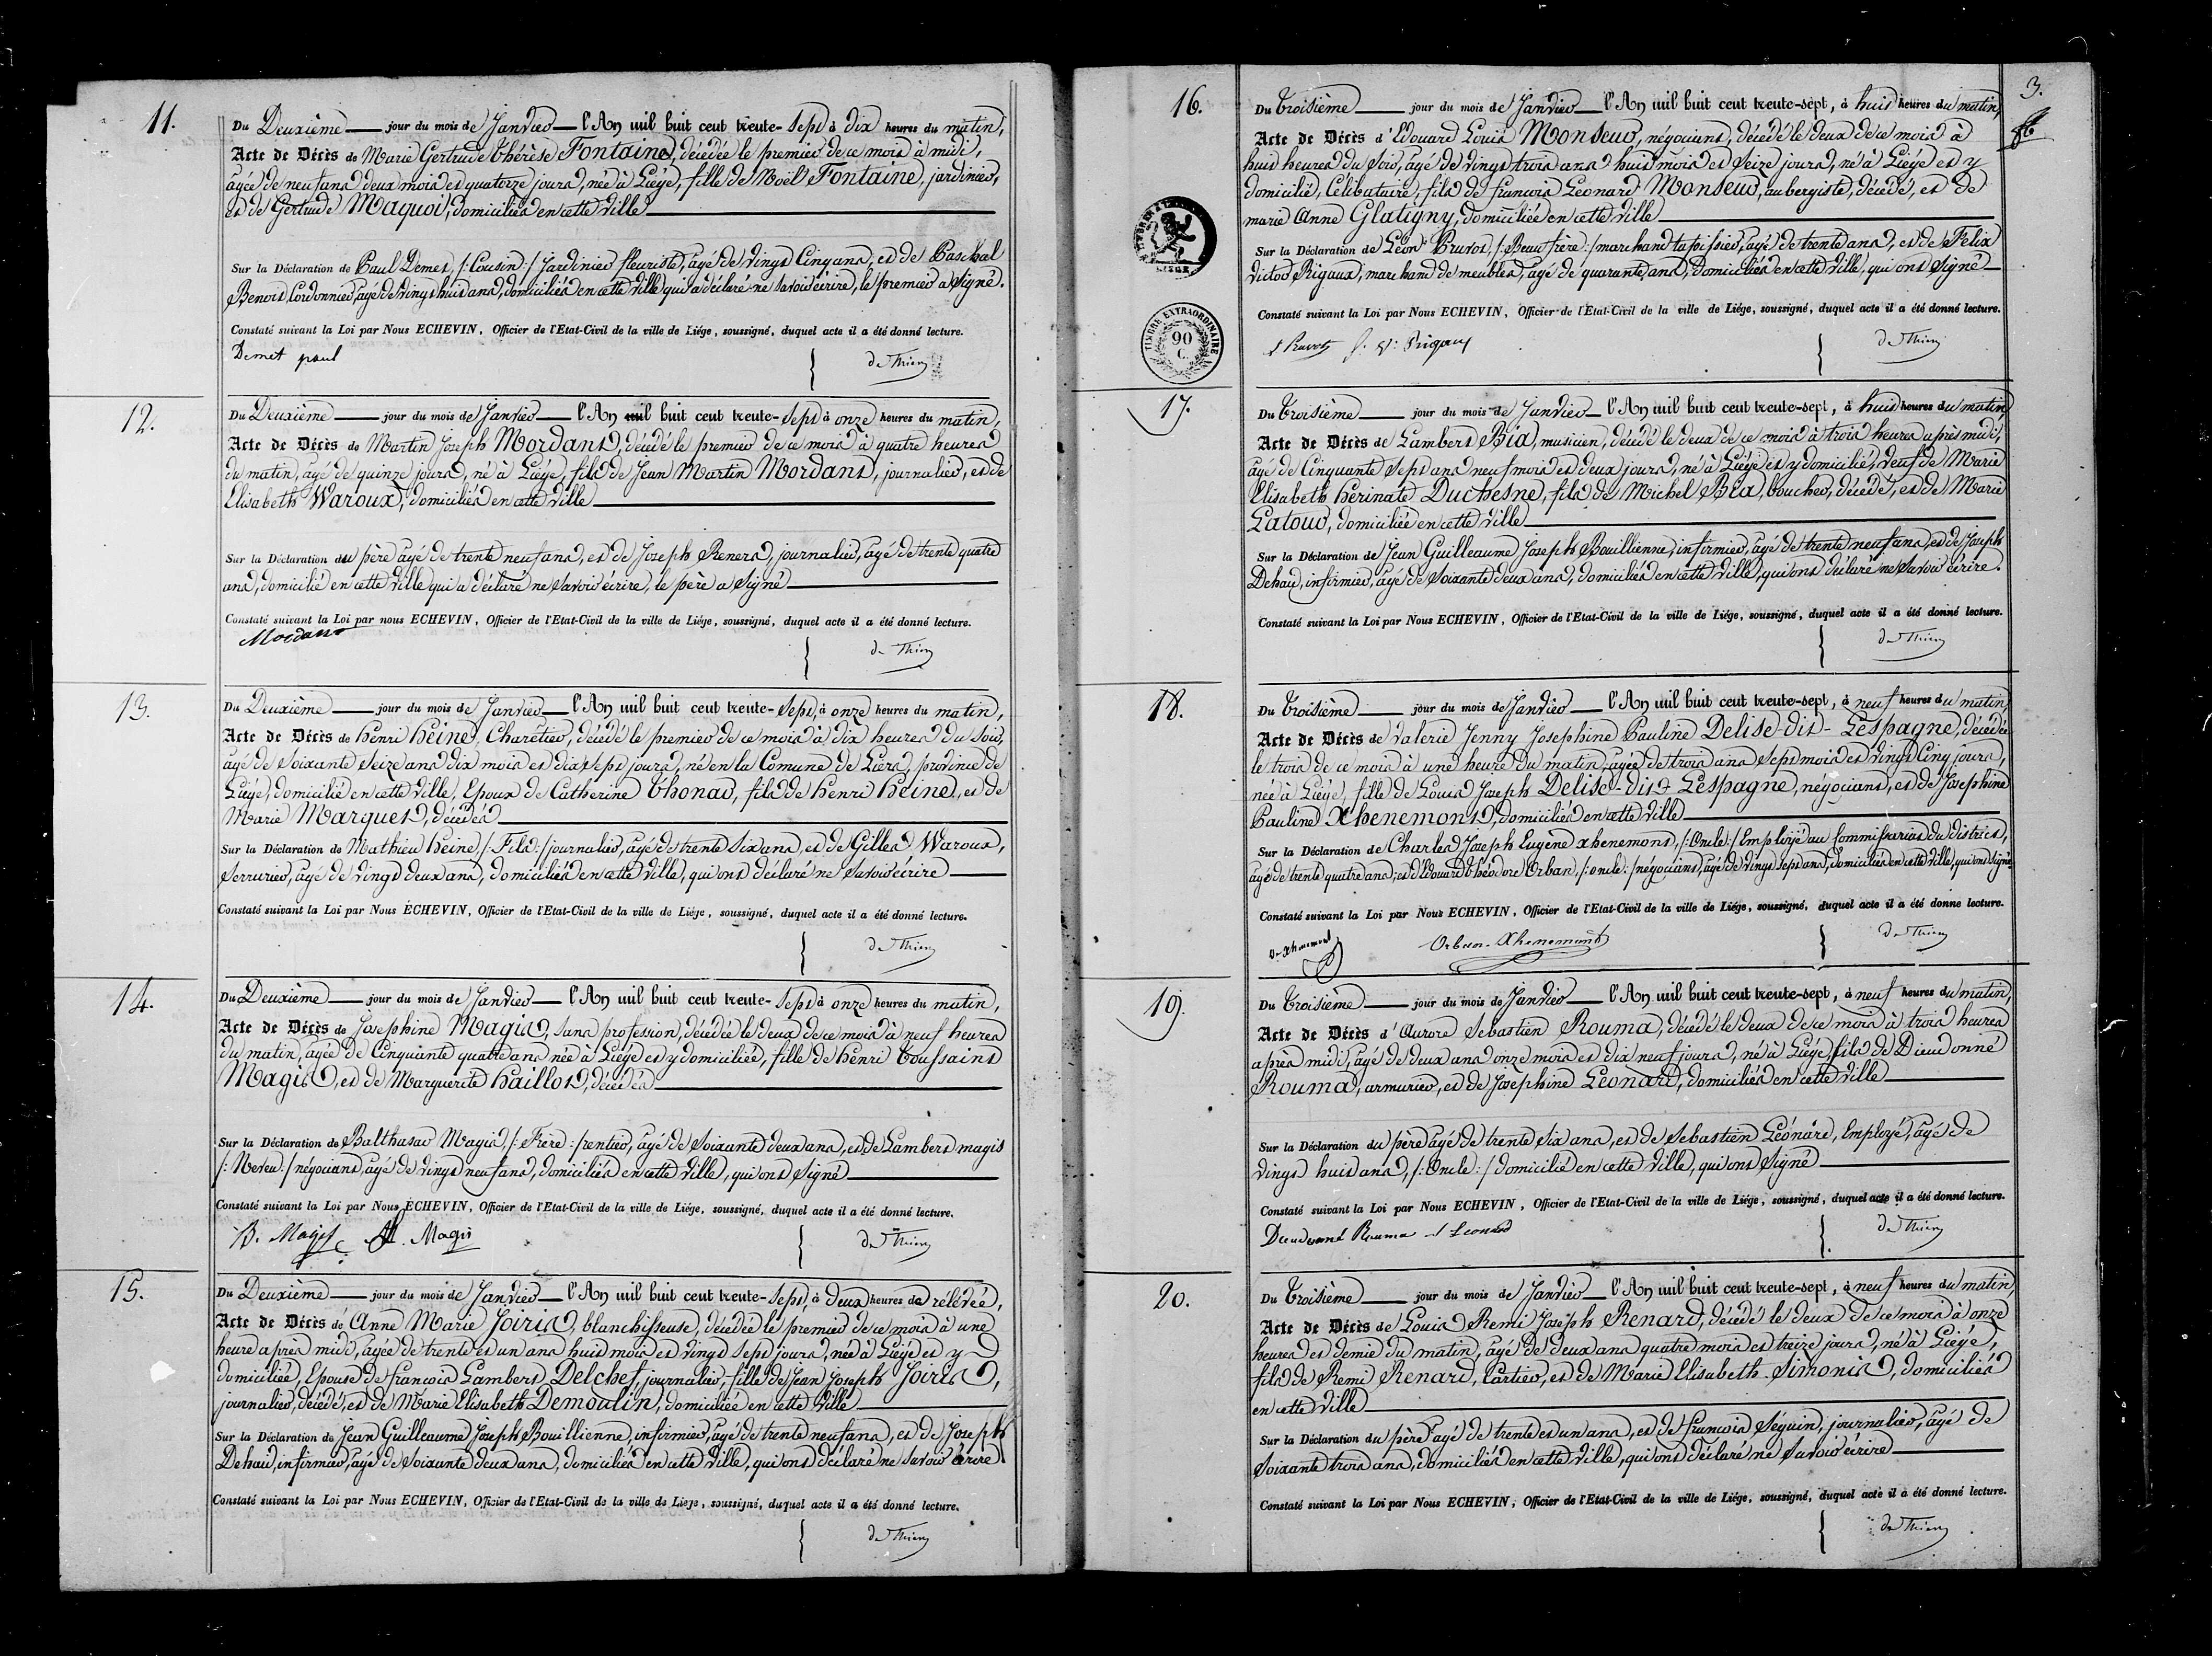 11.
Du Deuxième jour du mois de Janvier l'An mil huit cent trente-sept à dix heures du matin,
Acte de Décès de Marie Gertrude Thérèse Fontaine, décédée le premier de ce mois à midi,
agée de neuf ans deux mois et quatorze jours, née à Liége, fille de Noël Fontaine, jardinier,
et de Gertrude Maquoi, domiciliés en cette ville
Sur la Déclaration de Paul Demet, /: Cousin :/ Jardinier fleuriste, agé de vingt Cinq ans, et de Paschal
Benoit, Cordonnier, agé de vingt huit ans, domiciliés en cette ville qui a déclaré ne savoir écrire, le premier a Signé.
Constaté suivant la Loi par Nous ECHEVIN, Officier de l'Etat-Civil de la ville de Liége, soussigné, duquel acte il a été donné lecture.
Demet paul } de Thier
12.
Du Deuxième jour du mois de Janvier l'An mil huit cent trente-sept à onze heures du matin,
Acte de Décès de Martin Joseph Mordant, décédé le premier de ce mois à quatre heures
du matin, agé de quinze jours, né à Liége, fils de Jean Martin Mordant, journalier, et de
Elisabeth Waroux, domiciliés en cette ville
Sur la Déclaration du père agé de trente neuf ans, et de Joseph Reners, journalier, agé de trente quatre
ans, domicilié en cette ville qui a déclaré ne Savoir écrire, le père a Signé
Constaté suivant la Loi par nous ECHEVIN, Officier de l'Etat-Civil de la ville de Liége, soussigné, duquel acte il a été donné lecture.
Mordant } de Thier
13.
Du Deuxième jour du mois de Janvier l'An mil huit cent trente-sept, à onze heures du matin,
Acte de Décès de henri heine, Charetier, décédé le premier de ce mois à dix heures du Soir,
agé de Soixante Seize ans dix mois et dix sept jours, né en la Comune de Liers, province de
Liége, domicilié en cette ville, Epoux de Catherine Thonar, fils de henri heine, et de
Marie Marquet, décédés
Sur la Déclaration de Mathieu heine, /: Fils :/ journalier, agé de trente Six ans, et de Gilles Waroux,
Serrurier, agé de vingt deux ans, domiciliés en cette ville, qui ont déclaré ne Savoir écrire
Constaté suivant la Loi par Nous ÉCHEVIN, Officier de l'Etat-Civil de la ville de Liége, soussigné, duquel acte il a été donné lecture.
} de Thier
14.
Du Deuxième jour du mois de Janvier l'An mil huit cent trente-sept à onze heures du matin,
Acte de Décès de Josephine Magis, sans profession, décédée le deux de ce mois à neuf heures
du matin, agée de Cinquante quatre ans née à Liége et y domiciliée, fille de henri Toussaint
Magis, et de Marguerite haillot, décédés
Sur la Déclaration de Balthasar Magis, /: Frère :/ rentier, agé de Soixante deux ans, et de Lambert magis
/: Neveu :/ négociant, agé de vingt neuf ans, domiciliés en cette ville, qui ont Signé
Constaté suivant la Loi par Nous ÉCHEVIN, Officier de l'Etat-Civil de la ville de Liége, soussigné, duquel acte il a été donné lecture.
B. Magis Magis } de Thier
15.
Du Deuxième jour du mois de Janvier l'An mil huit cent trente-sept, à deux heures de relevée,
Acte de Décès de Anne Marie Joiris, blanchisseuse, décédée le premier de ce mois à une
heure après midi, agée de trente et un ans huit mois et vingt sept jours, née à Liége et y
domiciliée, Epouse de francois Lambert Delchef, journalier, fille de Jean Joseph Joiris,
journalier, décédé, et de Marie Elisabeth Demoulin, domiciliée en cette Ville
Sur la Déclaration de Jean Guilleaume Joseph Bouillienne, infirmier, agé de trente neuf ans, et de Joseph
Dehair, infirmier, agé de Soixante deux ans, domiciliés en cette ville, qui ont déclaré ne Savoir écrire
Constaté suivant la Loi par Nous ECHEVIN, Officier de l'Etat-Civil de la ville de Liége, soussigné, duquel acte il a été donné lecture.
} de Thier
3.
16.
Du Troisième jour du mois de Janvier l'An mil huit cent trente-sept, à huit heures du matin,
Acte de Décès d'Edouard Louis Monseur, négociant, décédé le deux de ce mois à
huit heures du Soir, agé de vingt trois ans huit mois et Seize jours, né à Liége et y
domicilié, Célibataire, fils de francois Leonard Monseur, aubergiste, décédé, et de
marie Anne Glatigny, domiciliée en cette ville
Sur la Déclaration de Léon Pruvot, /: Beau frère :/ marchand tapissier, agé de trente ans, et de Félix
Victor Rigaux, marchand de meubles, agé de quarante ans, domiciliés en cette ville, qui ont Signé
Constaté suivant la Loi par Nous ECHEVIN, Officier de l'Etat-Civil de la ville de Liége, soussigné, duquel acte il a été donné lecture.
LIEGE
TIMBRE EXTRAORDINAIRE
90
C.
L Pruvot f. V: Rigaux } de Thier
17.
Du Troisième jour du mois de Janvier l'An mil huit cent trente-sept, à huit heures du matin,
Acte de Décès de Lambert Bia, musicien, décédé le deux de ce mois à trois heures après midi,
agé de Cinquante Sept ans neuf mois et deux jours, né à Liége et y domicilié, veuf de Marie
Elisabeth herinate Duchesne, fils de Michel Bia, boucher, décédé, et de Marie
Latour, domiciliée en cette ville
Sur la Déclaration de Jean Guilleaume Joseph Bouillienne, infirmier, agé de trente neuf ans, et de Joseph
Dehair, infirmier, agé de Soixante deux ans, domiciliés en cette ville, qui ont déclaré ne Savoir écrire.
Constaté suivant la Loi par Nous ECHEVIN, Officier de l'Etat-Civil de la ville de Liége, soussigné, duquel acte il a été donné lecture.
} de Thier
18.
Du Troisième jour du mois de Janvier l'An mil huit cent trente-sept, à neuf heures du matin,
Acte de Décès de Valerie Jenny Josephine Pauline Delise-dit-Lespagne, décédée
le trois de ce mois à une heure du matin, agée de trois ans Sept mois et vingt Cinq jours,
née à Liége, fille de Louis Joseph Delise-dit Lespagne, négociant, et de Josephine
Pauline Xhenemont, domiciliés en cette ville
Sur la Déclaration de Charles Joseph Eugène xhenemont, /: Oncle :/ Employé au Commissariat du district,
agé de trente quatre ans, et d'Edouard Théodore Orban, /: oncle :/ négociant, agé de vingt Sept ans, domiciliés en cette ville, qui ont Signé
Constaté suivant la Loi par Nous ECHEVIN, Officier de l'Etat-Civil de la ville de Liége, soussigné, duquel acte il a été donne lecture.
Orban-Xhenemont } de Thier
19.
Du Troisième jour du mois de Janvier l'An mil huit cent trente-sept, à neuf heures du matin,
Acte de Décès d'Aurore Sebastien Rouma, décédé le deux de ce mois à trois heures
après midi, agé de deux ans onze mois et dix neuf jours, né à Liége, fils de Dieudonné
Rouma, armurier, et de Josephine Leonard, domiciliés en cette ville
Sur la Déclaration du père agé de trente Six ans, et de Sebastien Léonard, Employé, agé de
vingt huit ans, /: Oncle :/ domicilié en cette ville, qui ont Signé
Constaté suivant la Loi par Nous ECHEVIN, Officier de l'Etat-Civil de la ville de Liége, soussigné, duquel acte il a été donné lecture.
Dieudonné Rouma Leonard } de Thier
20.
Du Troisième jour du mois de Janvier l'An mil huit cent trente-sept, à neuf heures du matin,
Acte de Décès de Louis Remi Joseph Renard, décédé le deux de ce mois à onze
heures et demie du matin, agé de deux ans quatre mois et treize jours, né à Liége,
fils de Remi Renard, Cartier, et de Marie Elisabeth Simonis, domiciliés
en cette ville
Sur la Déclaration du père agé de trente et un ans, et de francois Séquin, journalier, agé de
Soixante trois ans, domiciliés en cette ville, qui ont déclaré ne Savoir écrire
Constaté suivant la Loi par Nous ECHEVIN, Officier de l'Etat-Civil de la ville de Liége, soussigné, duquel acte il a été donné lecture.
} de Thier